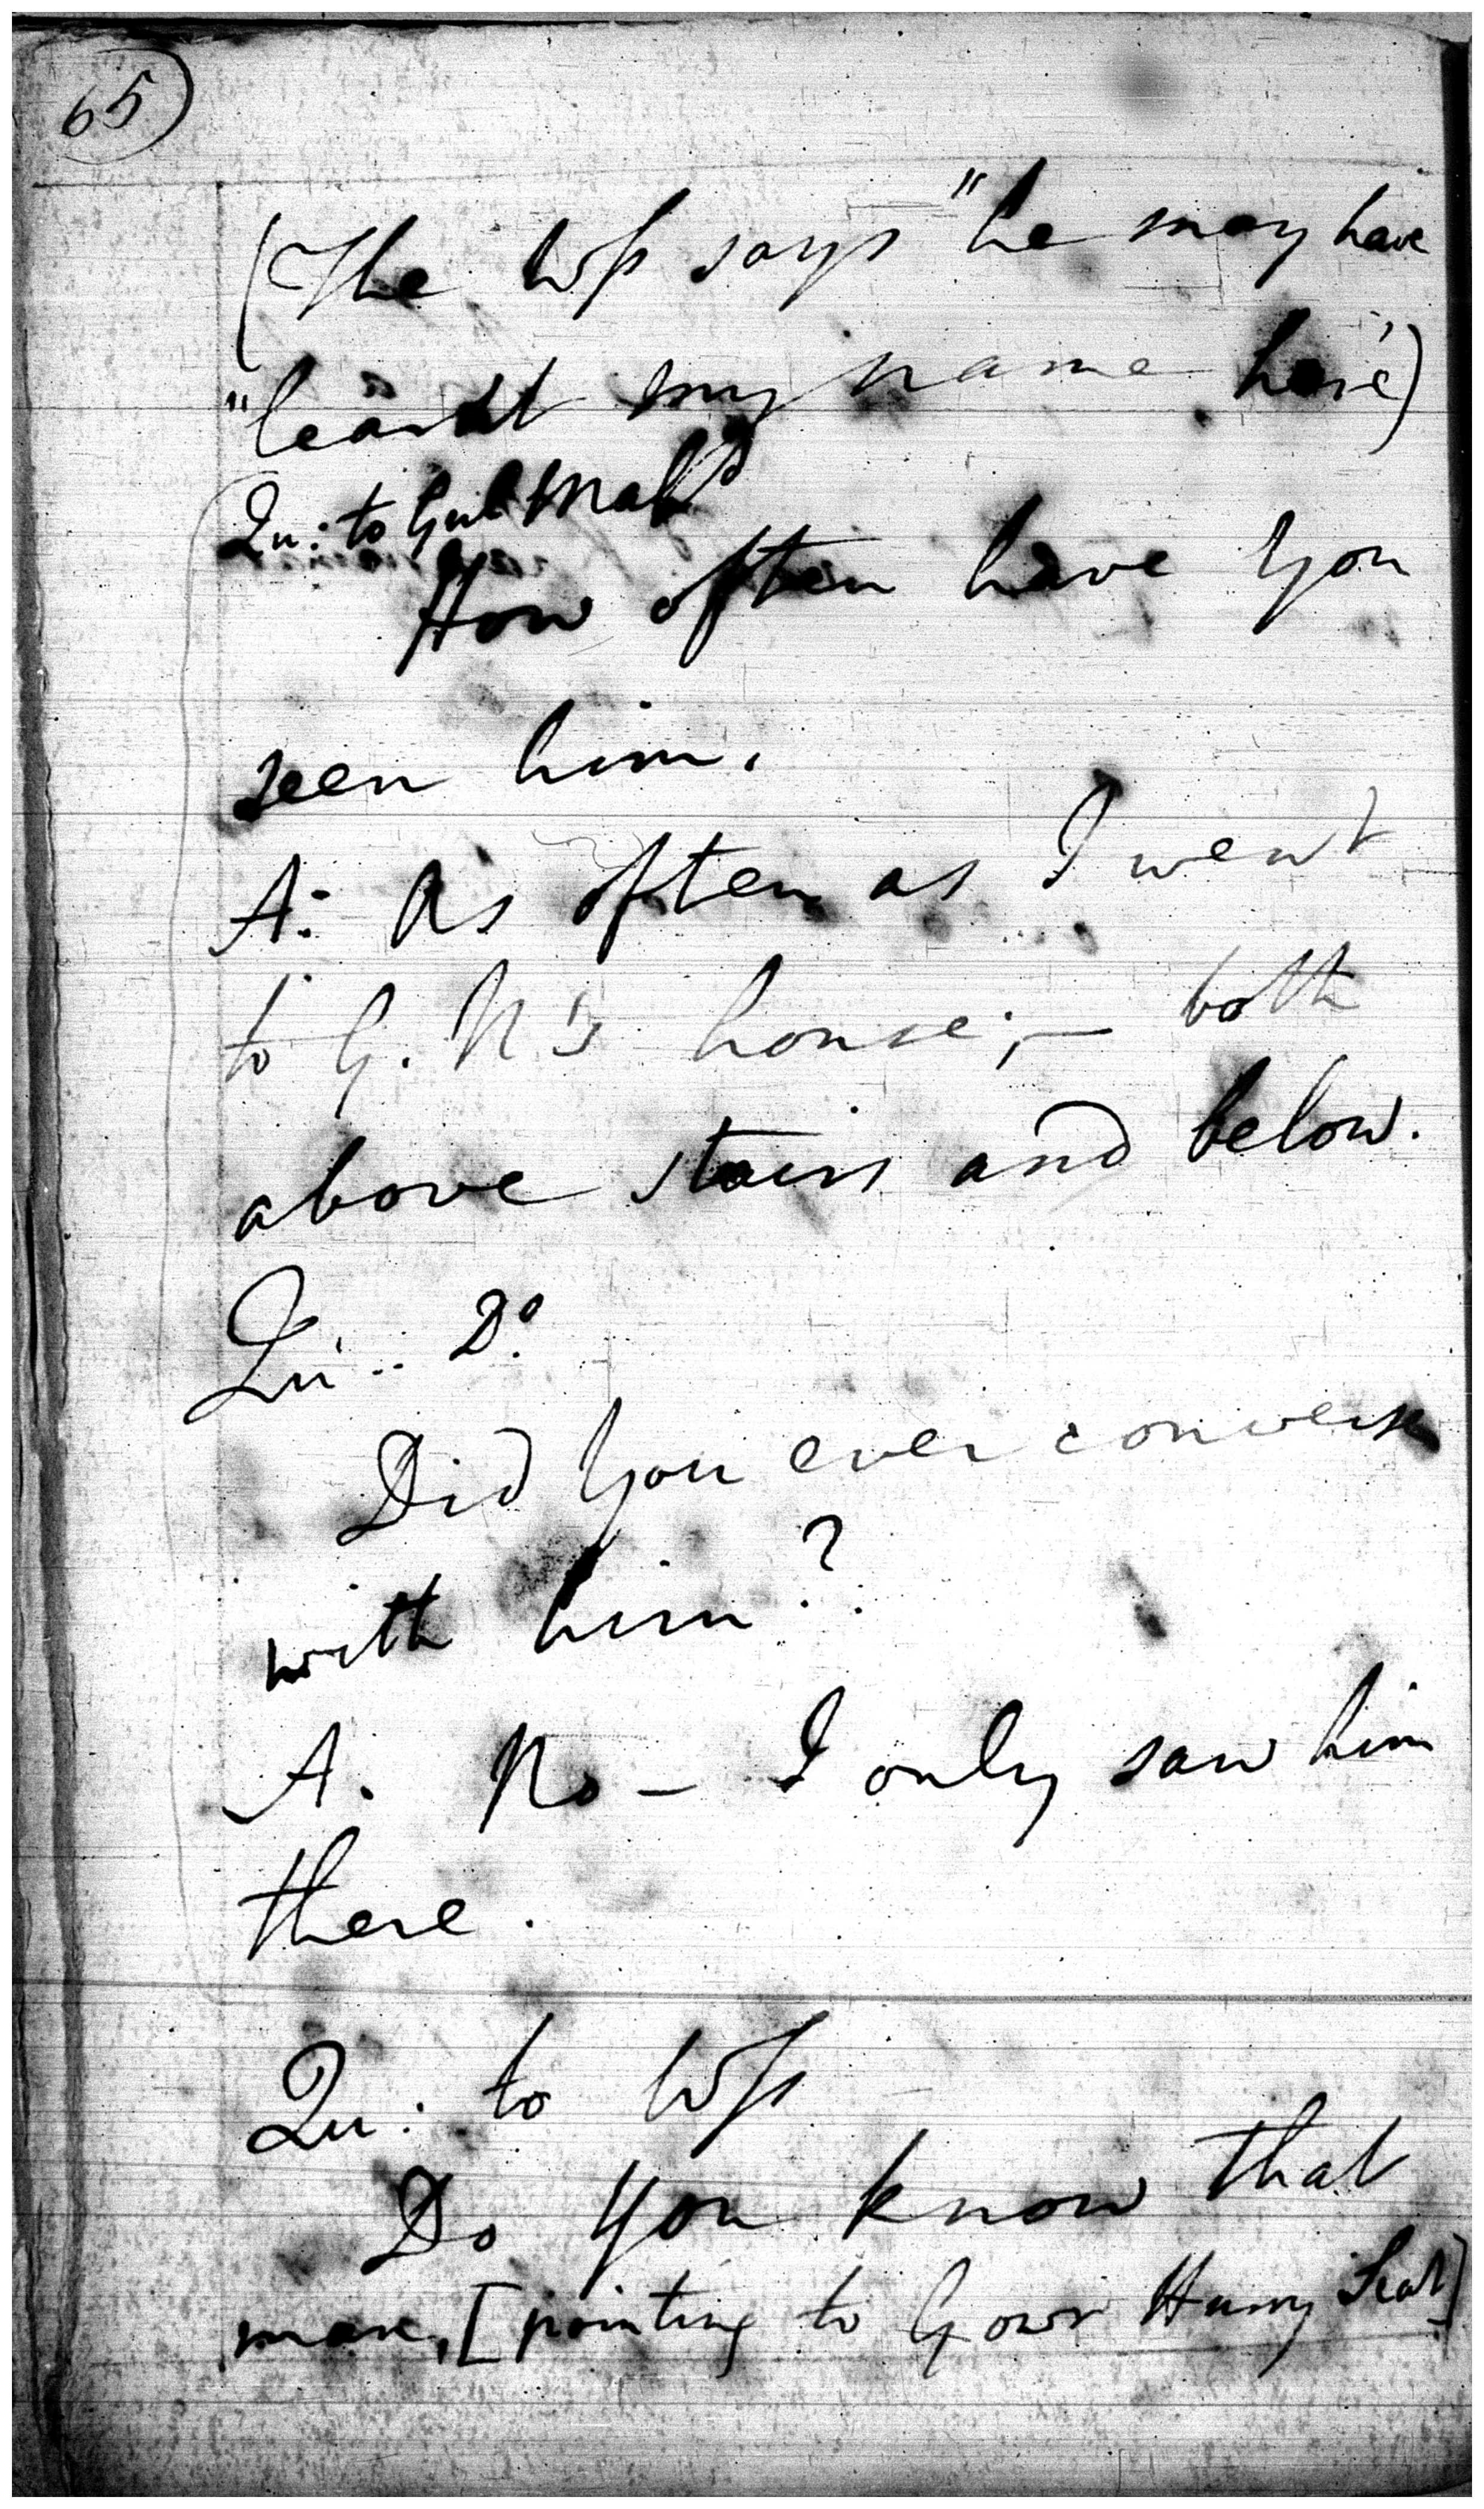 65
(The Wss says "he may have
"learnt my name here")
Qu: to Gul Mahd
How often have you
seen him.
A: As often as I went
to G. N's house; — both
above stairs and below.
Qu: .. Do
Did you ever converse
with him?
A. No — I only saw him
there.
Qu: to Wss
Do you know that
man, [pointing to Gour Hurry Seal]